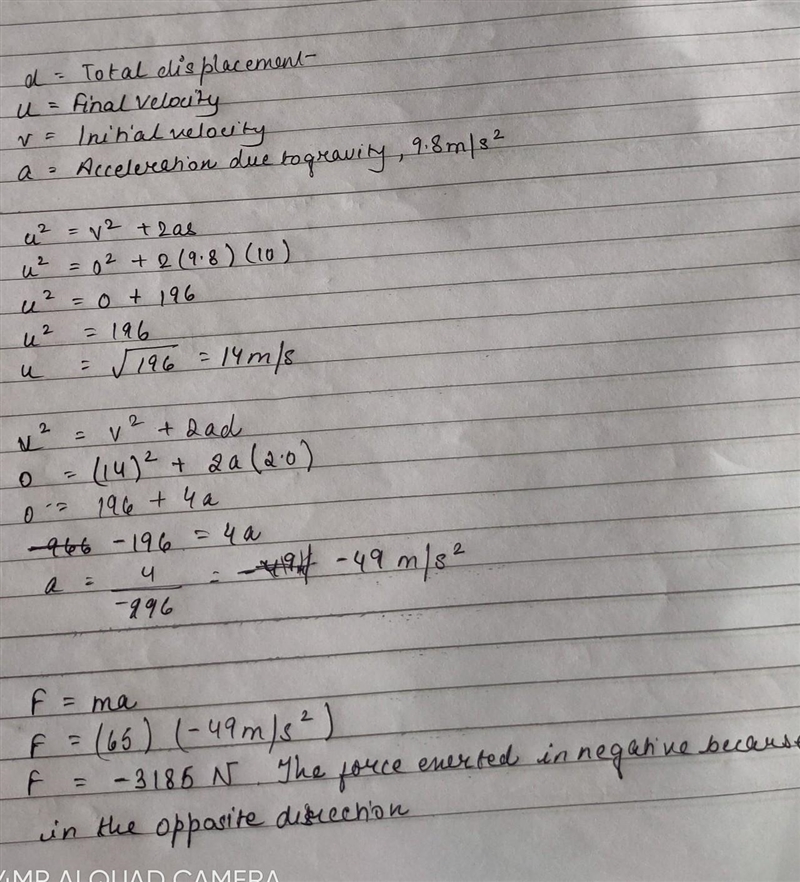 d = Total displacement
u = Final velocity
v = Initial velocity
a = Acceleration due to gravity, 9.8 m/s²
u² = v² + 2as
u² = 0² + 2(9.8)(10)
u² = 0 + 196
u² = 196
u = √196 = 14 m/s
u² = v² + 2ad
0 = (14)² + 2a(2.0)
0 = 196 + 4a
-196 = 4a
a = 4/-296 = -49 m/s²
F = ma
F = (65) (-49m/s²)
F = -3185 N. The force exerted in negative because
in the opposite direction
MP ALQUAD CAMERA